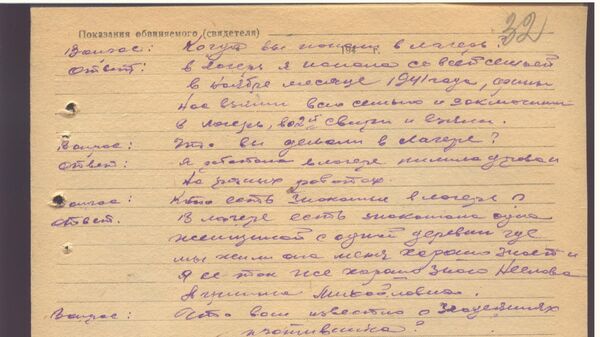 32
Показания обвиняемого (свидетеля)
194 г.
Вопрос: Когда вы попали в лагерь?
Ответ: в лагерь я попала со всей семьей
в ноябре месяце 1941 года, финны
нас взяли всю семью и заключили
в лагерь, во
Вопрос: Что вы делали в лагере?
Ответ: Я работала в лагере
на разных работах.
Вопрос: Кто есть знакомые в лагере?
Ответ. В лагере есть знакомая одна
женщиной с одной деревни где
мы жили она меня хорошо знает и
я ее так же хорошо знаю
Михайловна.
Вопрос: Что вам известно о злодеяниях
противника?